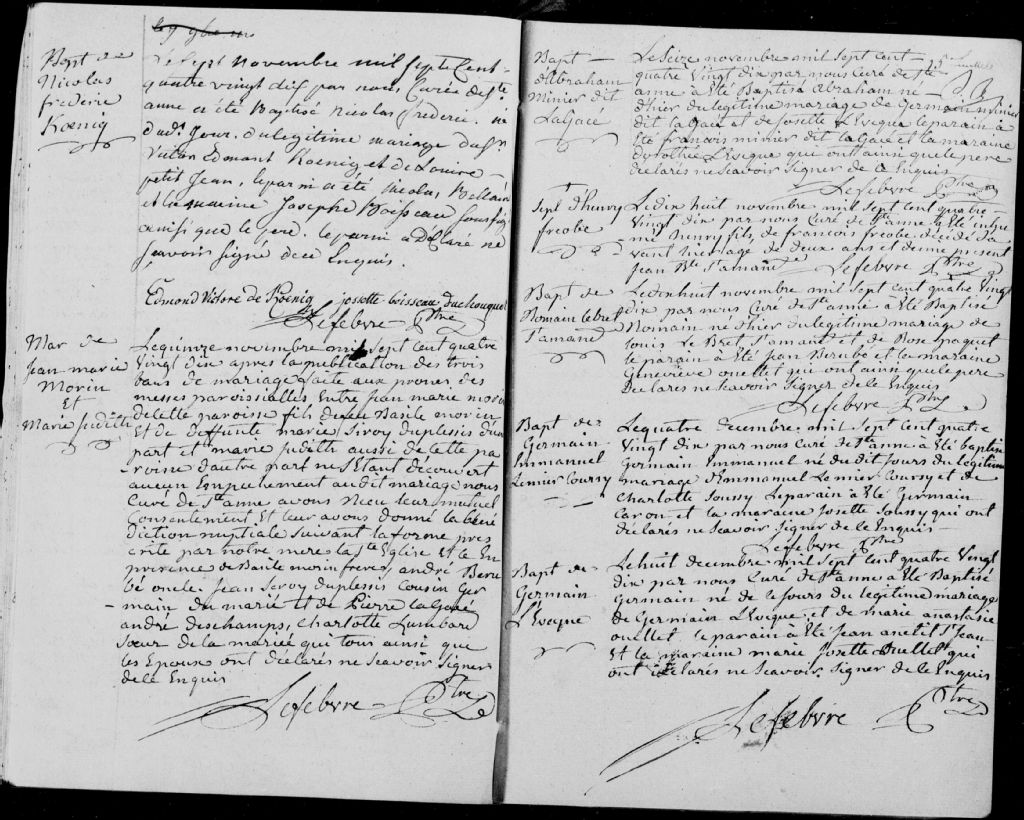 Bapt de
Nicolas
frederic
Kœnig
Le Sept Novembre mil Sept Cent
quatre vingt dix par nous Curé de Ste
anne a été Baptisé Nicolas frederic né
du legitime mariage du Sr
Victor Edmont Koenig et de Louise
petit Jean, le parin a été Nicolas
et la maraine Josephe Boisseau
ainsi que le pere. le parin a Declaré ne
Sçavoir signé de ce Enquis.
Edmond Victore de Koenig josette boisseau duchouquet
Lefebvre Ptre
Mar de
jean marie
Morin
Et
Marie judith
Le quinze novembre mil Sept Cent quatre
Vingt dix apres la publication des trois
bans de mariage faite aux prones des
messes paroissialles Entre jean marie morin
de cette paroisse fils de feu Basile morin
Et de deffunte marie Siroy duplessis d'une
part et marie judith aussi de cette pa
roisse d'autre part ne S'Etant decouvert
aucun Empechement au dit mariage nous
Curé de Ste anne avons Recu leur mutuel
Consentement Et leur avons donné la bene
diction nuptiale Suivant la forme pres
crite par notre mere la Ste Eglise Et le En
presence de Basile morin frere, andré Beru
bé oncle, jean Siroy duplessis Cousin Ger
main du marié Et de Pierre la Gacé
andre deschamps, Charlotte Lumbard
Sœur de la mariée qui tous ainsi que
les Epoux ont declarés ne Sçavoir Signer
de le Enquis
Lefebvre Ptre
Bapt
d'Abraham
Minier dit
LaGacé
Le Seize novembre mil Sept cent
quatre Vingt dix par nous Curé de Ste
anne à Eté Baptisé Abraham né
d'hier du legitime mariage de Germain minier
dit la Gacé et de Josette L'Eveque le parain à
Eté françois minier dit la Gacé et la maraine
L'Evêque qui ont ainsi que le pere
declarés ne Scavoir Signer de le Enquis
Lefebvre Ptre
Sept d'henry
freobe
Le dix huit novembre mil Sept Cent quatre
Vingt dix par nous Curé de Ste anne à Eté inhu
mé henry fils de francois freobe décédé d'a
vant hier agé de deux ans et demie present
Jean Bte St amand
Lefebvre Ptre
Bapt de
Romain le bret
St amand
Le dix huit novembre mil Sept Cent quatre Vingt
dix par nous Curé de Ste anne à Eté Baptisé
Romain né d'hier du legitime mariage de
Louis Le Bret St amand et de Rose paquet
le parain à Eté jean Berubé et la maraine
Genevieve ouellet qui ont ainsi que le pere
declares ne Scavoir Signer de le Enquis
Lefebvre Ptre
Bapt de
Germain
Emmanuel
Lennier Coursy
Le quatre decembre mil Sept Cent quatre
Vingt dix par nous Curé de Ste anne à Eté baptisé
Germain Emmanuel né du dit jour du legitime
mariage d'Emmanuel Lennier Coursy et de
Charlotte Soussy Le parain à Eté Germain
Caron et la maraine Josette Soussy qui ont
declarés ne Scavoir Signer de le Enquis
Lefebvre Ptre
Bapt de
Germain
L'Evêque
Le huit decembre mil Sept Cent quatre Vingt
dix par nous Curé de Ste anne à Eté Baptisé
Germain né de ce jour du legitime mariage
de Germain L'Evêque et de marie anastasie
ouellet le parain à Eté jean St Jean
Et la maraine marie Josette Ouellet qui
ont declarés ne Scavoir Signer de le Enquis
Lefebvre Ptre